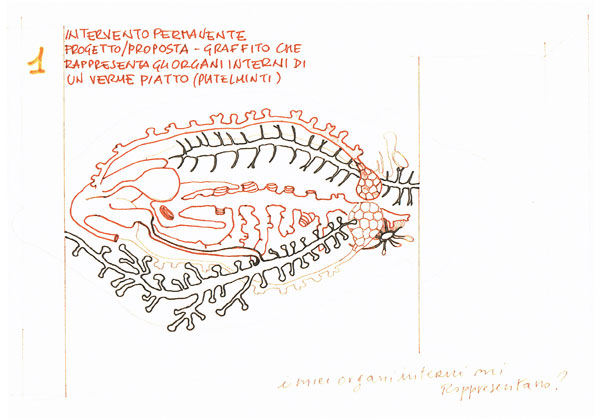 INTERVENTO PERMANENTE
PROGETTO/PROPOSTA - GRAFFITO CHE
RAPPRESENTA GLI ORGANI INTERNI DI
UN VERME PIATTO (PUTELMINTI)
1
i miei organi interni mi
Rappresentano?